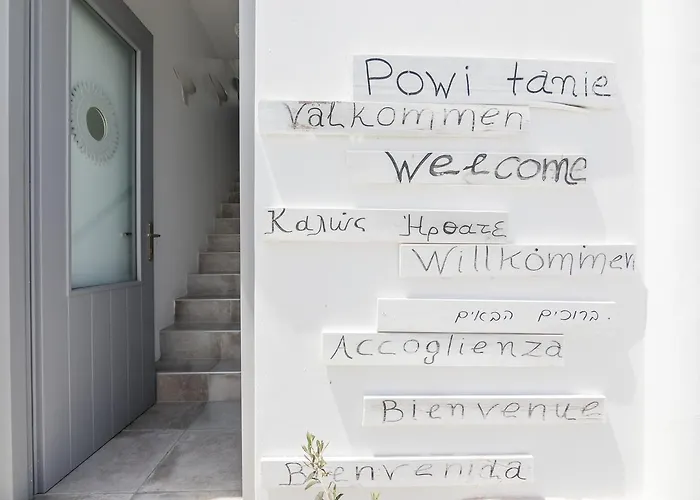 Powi tanie
Valkommen
Welcome
Καλώς Ήρθατε
Willkömmen
ברוכים הבאים.
Accoglienza
Bienvenue
Bienvenida